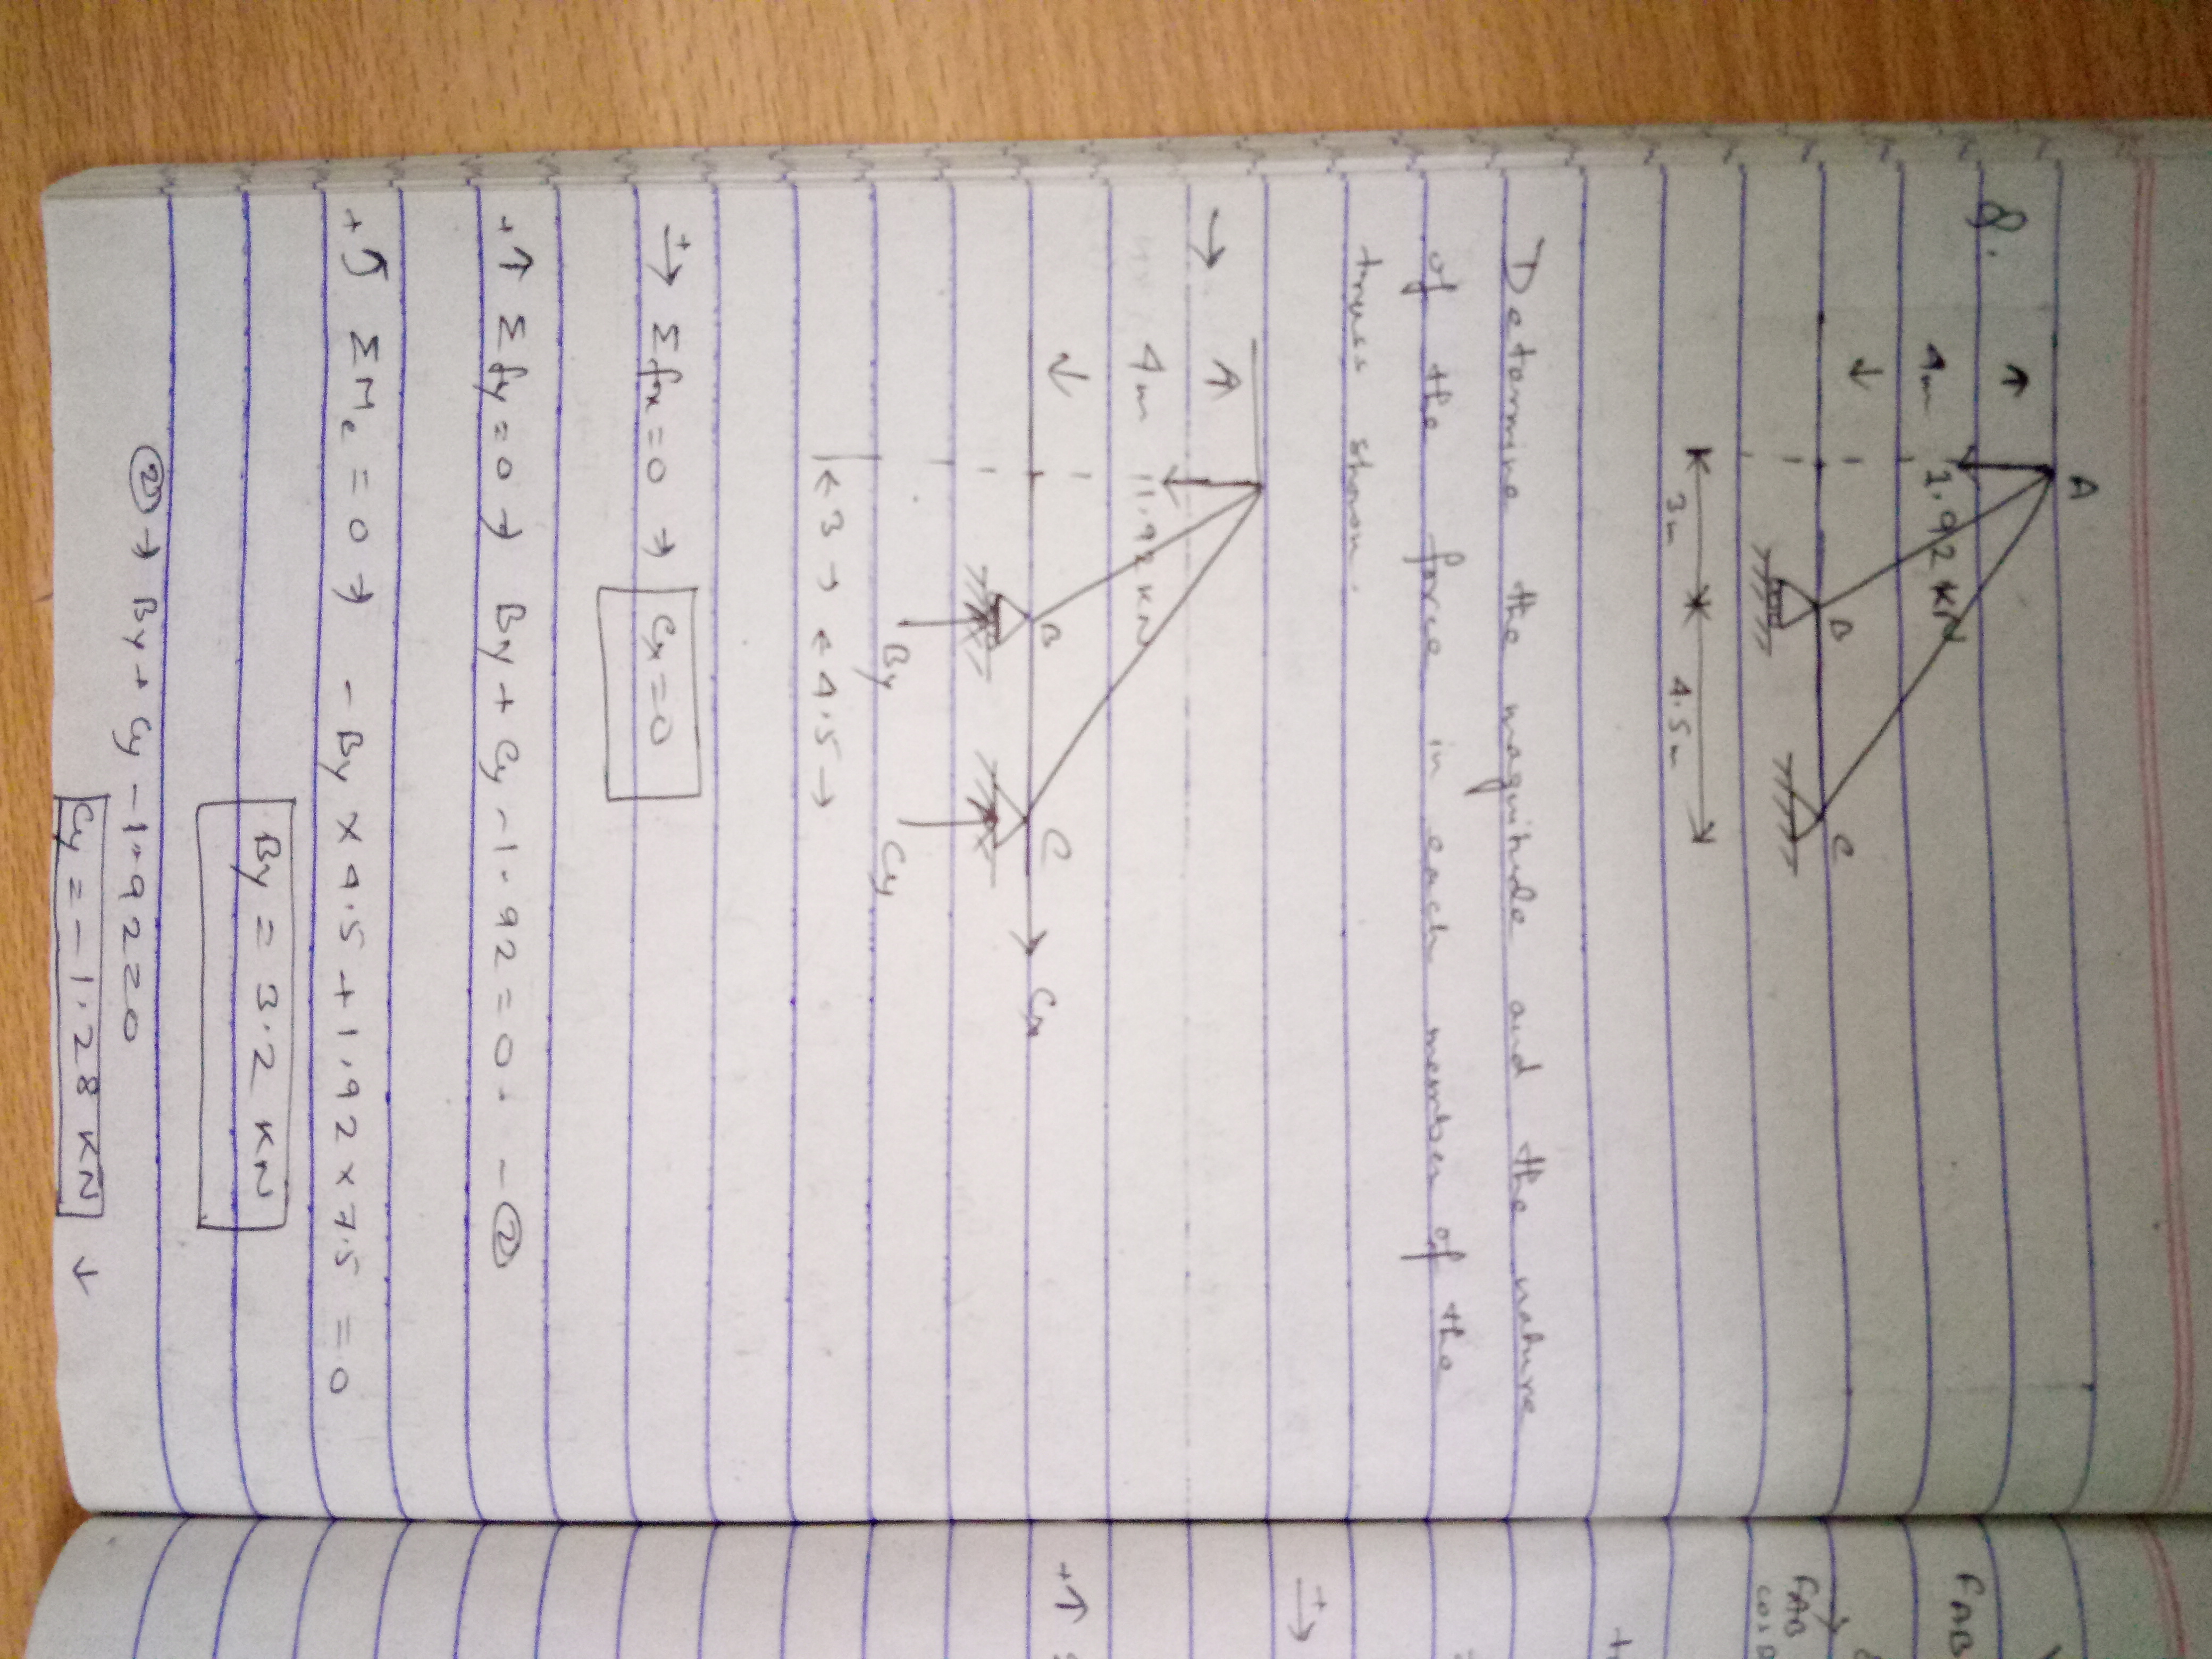 A
Q.
4m
1.92 KN
B
C
3m
4.5m
Determine the magnitude and the nature
of the force in each member of the
truss shown.
→
4m
1.92 KN
B
C
Cx
By
Cy
←3→ ←4.5→
+→ Σfx=0 → Cx=0
+↑ Σfy=0 → By + Cy - 1.92 = 0. - ②
+↺ ΣMc = 0 → - By × 4.5 + 1.92 × 7.5 = 0
By = 3.2 KN
② → By + Cy - 1.92=0
Cy = - 1.28 KN ↓
FAB
FAB
+→
+↑